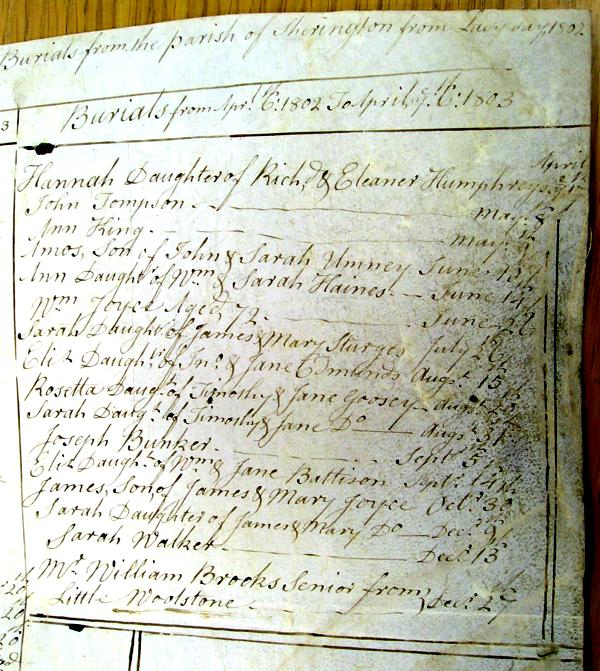 Burials from the Parish of Sherington from Lady day, 1802
3
Burials from Apr. 6: 1802 To April ye 6: 1803
April
Hannah Daughter of Richd & Eleaner Humphreys
John Tompson May
Ann King May
Amos, Son of John & Sarah Umney June 13
Ann Daught of Wm & Sarah Haines June 14
Wm Joyce Aged 72 June
Sarah Daught of James & Mary Sturges July
Eliz Daught of Jno & Jane Edmunds Augst 15
Rosetta Daugt of Timothy & Jane Goosey Augst
Sarah Daugt of Timothy & Jane Do Augst
Joseph Bunker Sept 5
Eliz Daught of Wm & Jane Battison Sept 14
James, Son of James & Mary Joyce Oct 30
Sarah Daughter of James & Mary Do Dec 9
Sarah Walker Decr 13
Mr William Brooks Senior from
Little Woolstone Decr 27